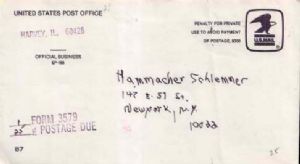 UNITED STATES POST OFFICE
HARVEY, IL 60426
OFFICIAL BUSINESS
PENALTY FOR PRIVATE
USE TO AVOID PAYMENT
OF POSTAGE, $300
U.S. MAIL
Hammacher Schlemner
147 E. 57 St.
Newyork, N.Y.
10022
FORM 3579
POSTAGE DUE
25